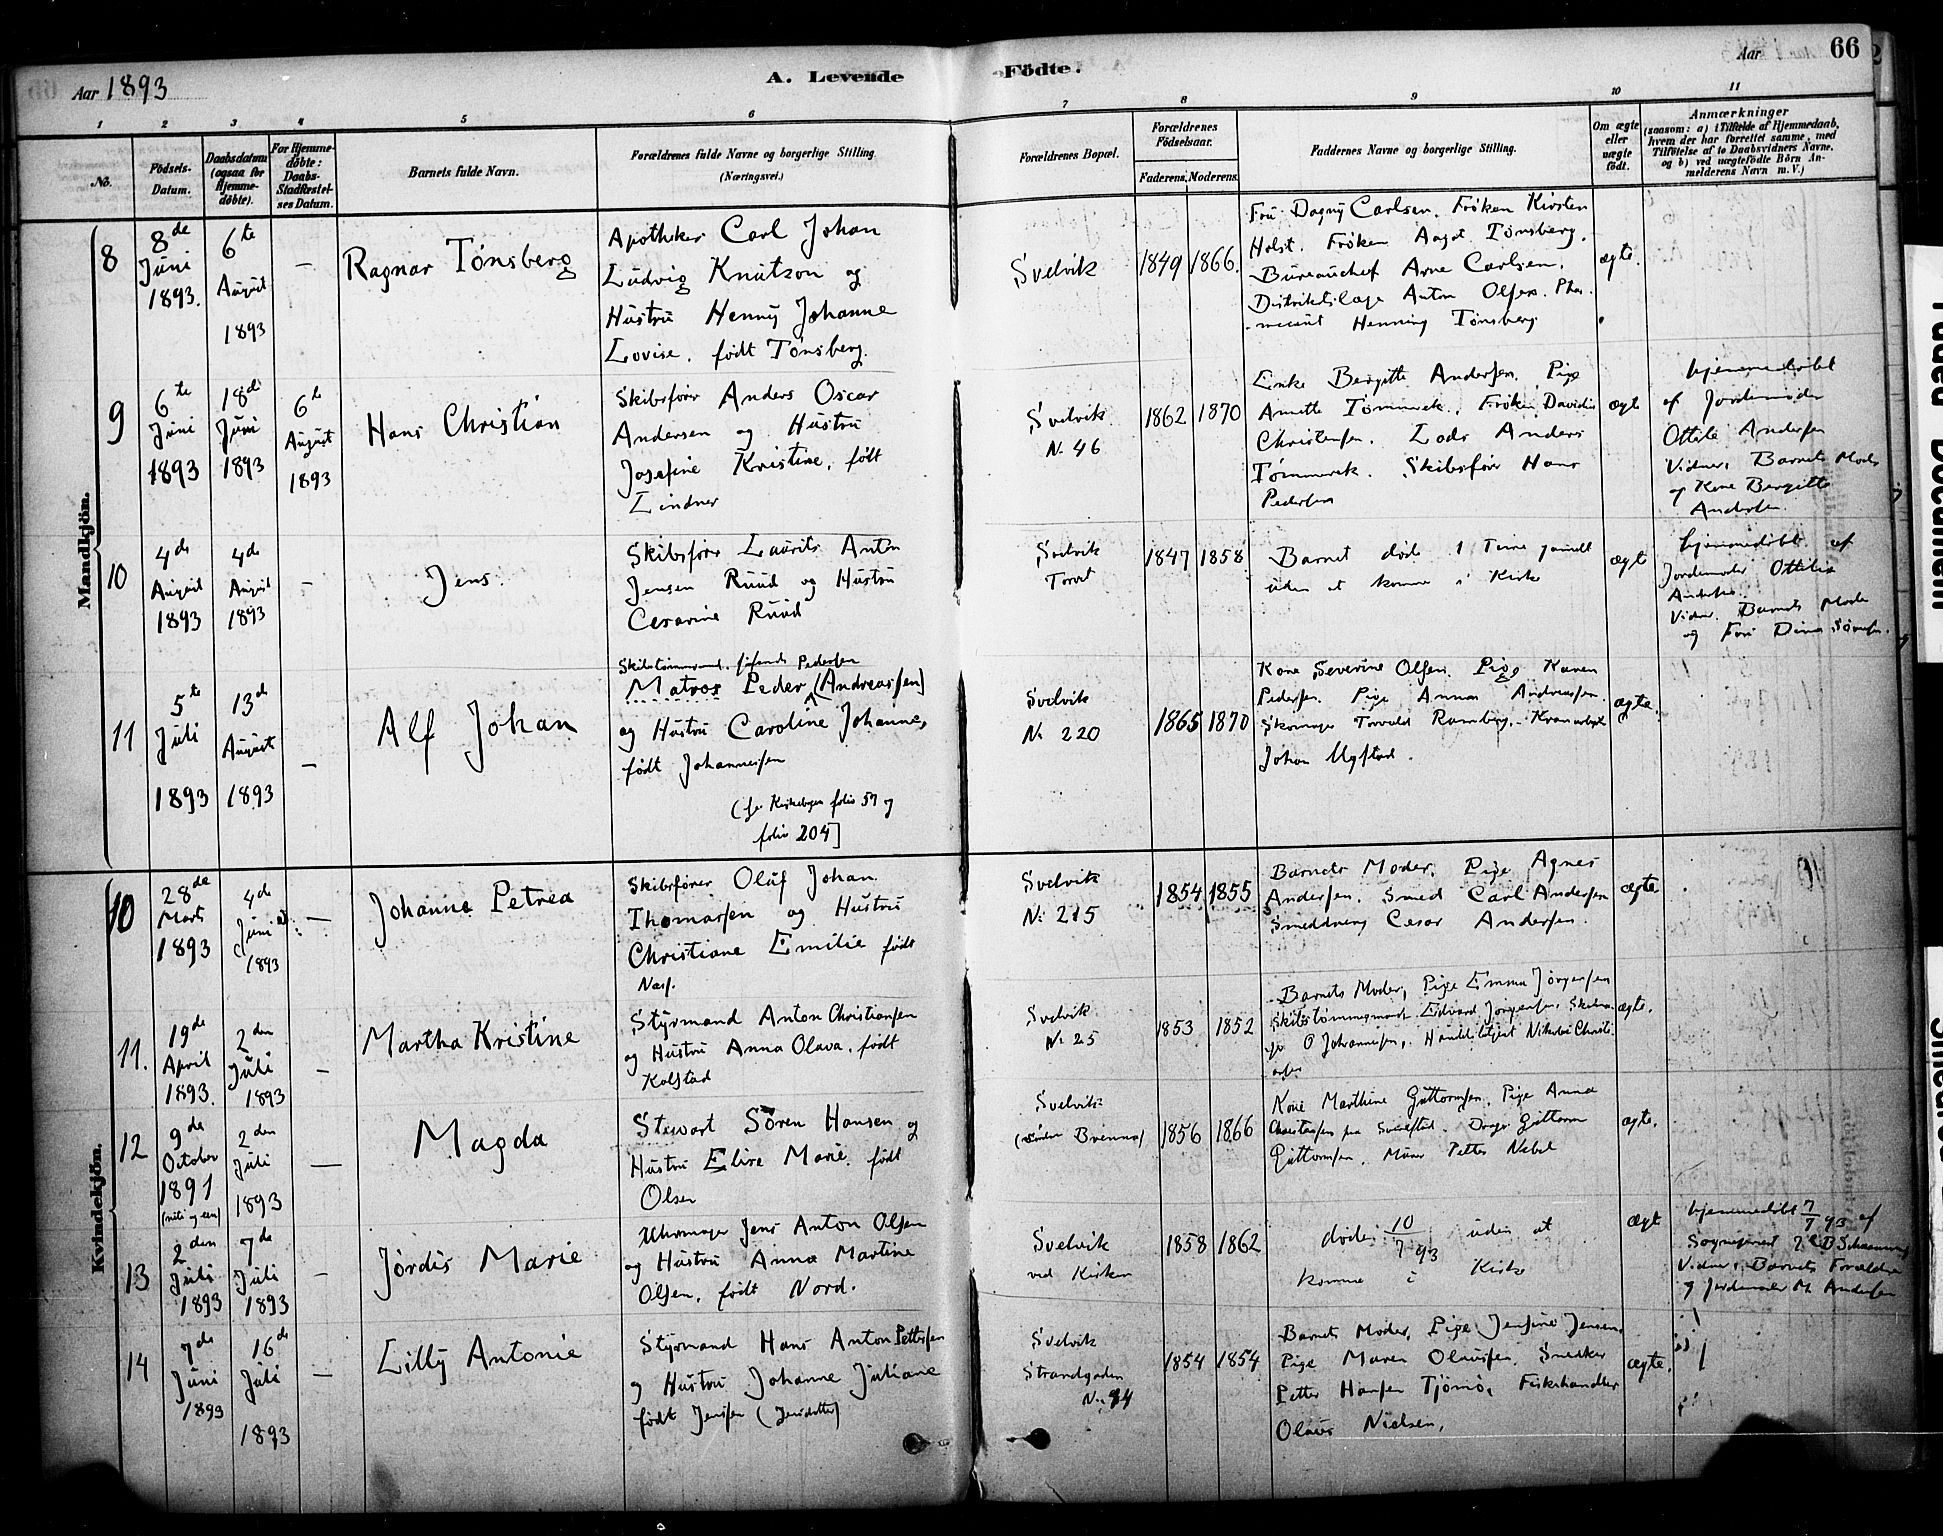 Aar 1893
A. Levende Födte.
Aar 66
1 2 3 4 5 6 7 8 9 10 11
No.
Födsels-Datum.
Daabsdatum (ogsaa for Hjemme-döbte).
For Hjemme-döbte: Daabs-Stadfæstel-ses Datum.
Barnets fulde Navn.
Forældrenes fulde Navne og borgerlige Stilling (Næringsvei.)
Forældrenes Bopæl.
Forældrenes Födselsaar.
Faderens. Moderens.
Faddernes Navne og borgerlige Stilling.
Om ægte eller uægte födt.
Anmærkninger
(saasom: a) i Tilfælde af Hjemmedaab,
hvem der har forrettet samme, med
Tilföielse af to Daabsvidners Navne,
og b) ved uægtefödte Börn An-
melderens Navn m. V.)
Mandkjön.
8
8de Juni 1893.
6te August 1893
–
Ragnar Tönsberg
Apotheker Carl Johan
Ludvig Knutzon og
Hustru Henny Johanne
Lovise, født Tønsberg.
Svelvik
1849 1866.
Fru Dagny Carlsen. Frøken Kirsten
Holst. Frøken Aagot Tønsberg.
Bureauchef Arne Carlsen.
Distriktslæge Anton Olsen. Phar-
maceut Henning Tønsberg
ægte.
9
6te Juni 1893
18de Juni 1893
6te August 1893
Hans Christian
Skibsfører Anders Oscar
Andersen og Hustru
Josefine Kristine, født
Lindner
Svelvik
No 46
1862 1870
Enke Bergitte Andersen. Pige
Anette Tømmerek. Frøken Davida
Christensen. Lods Anders
Tømmerek. Skibsfører Hans
Pedersen
ægte
hjemmedøbt
af Jordemoder
Ottilie Andersen
Vidner, Barnets Moder
og Kone Bergitte
Andersen.
10
4de August 1893
4de August 1893
–
Jens.
Skibsfører Laurits Anton
Jensen Ruud og Hustru
Cesarine Ruud
Svelvik
Torvet
1847 1858
Barnet døde 1 Time gammelt
uden at komme i Kirke
ægte
hjemmedøbt af
Jordemoder Ottilie
Andersen.
Vidner. Barnets Moder
og Fru Dina
11
5te Juli 1893
13de August 1893
–
Alf Johan
Skibstømmermand Pedersen
Matros Peder (Andreassen)
og Hustru Caroline Johanne,
født Johannessen
(se Kirkebogen folio 59 og
folio 204]
Svelvik
No 220
1865 1870
Kone Severine Olsen. Pige Karen
Pedersen. Pige Anna Andreassen
Skomager Torvald Ramberg.
Johan Mystad.
ægte.
Kvindekjön.
10
28de Marts 1893
4de Juni 1893
–
Johanne Petrea
Skibsfører Oluf Johan
Thomassen og Hustru
Christiane Emilie født
Næss.
Svelvik
No 215
1854 1855
Barnets Moder, Pige Agnes
Andersen. Smed Carl Andersen
Smeddreng Cesar Andersen.
ægte
11.
19de April 1893.
2den Juli 1893
–
Martha Kristine
Styrmand Anton Christiansen
og Hustru Anna Olava, født
Kolstad
Svelvik
No 25
1853 1852
Barnets Moder, Pige Emma Jørgensen
Skibstømmermand Edvard Jørgensen
O Johannesen, Handelsbetjent Nikolai Christi-
ansen
ægte.
12
9de October 1891
(niti og een)
2den Juli 1893
–
Magda
Stewart Søren Hansen og
Hustru Elise Marie. født
Olsen
Svelvik
(søndre Brenna)
1856 1866
Kone Marthine Guttormsen, Pige Anna
Christensen fra Dreng Guttorm
Guttormsen. Murer Petter Nebel
ægte.
13
2den Juli 1893
7de Juli 1893
–
Jørdis Marie
Uhrmager Jens Anton Olsen
og Hustru Anna Martine
Olsen, født Nord.
Svelvik
ved Kirken
1858 1862
døde 10/7 93 uden at
komme i Kirke
ægte
hjemmedøbt 7/7 93 af
Sogneprest
Vidner, Barnets Forældre
og Jordemoder M. Andersen
14
7de Juni 1893
16de Juli 1893
–
Lilly Antonie
Styrmand Hans Anton Pettersen
og Hustru Johanne Juliane
født Jenssen (Jensdatter)
Svelvik
Strandgaden
No 94
1854 1854
Barnets Moder, Pige Jensine Jensen.
Pige Maren Olaussen. Snedker
Petter Hansen Tjømø, Fiskehandler
Olaus Nielsen.
ægte.